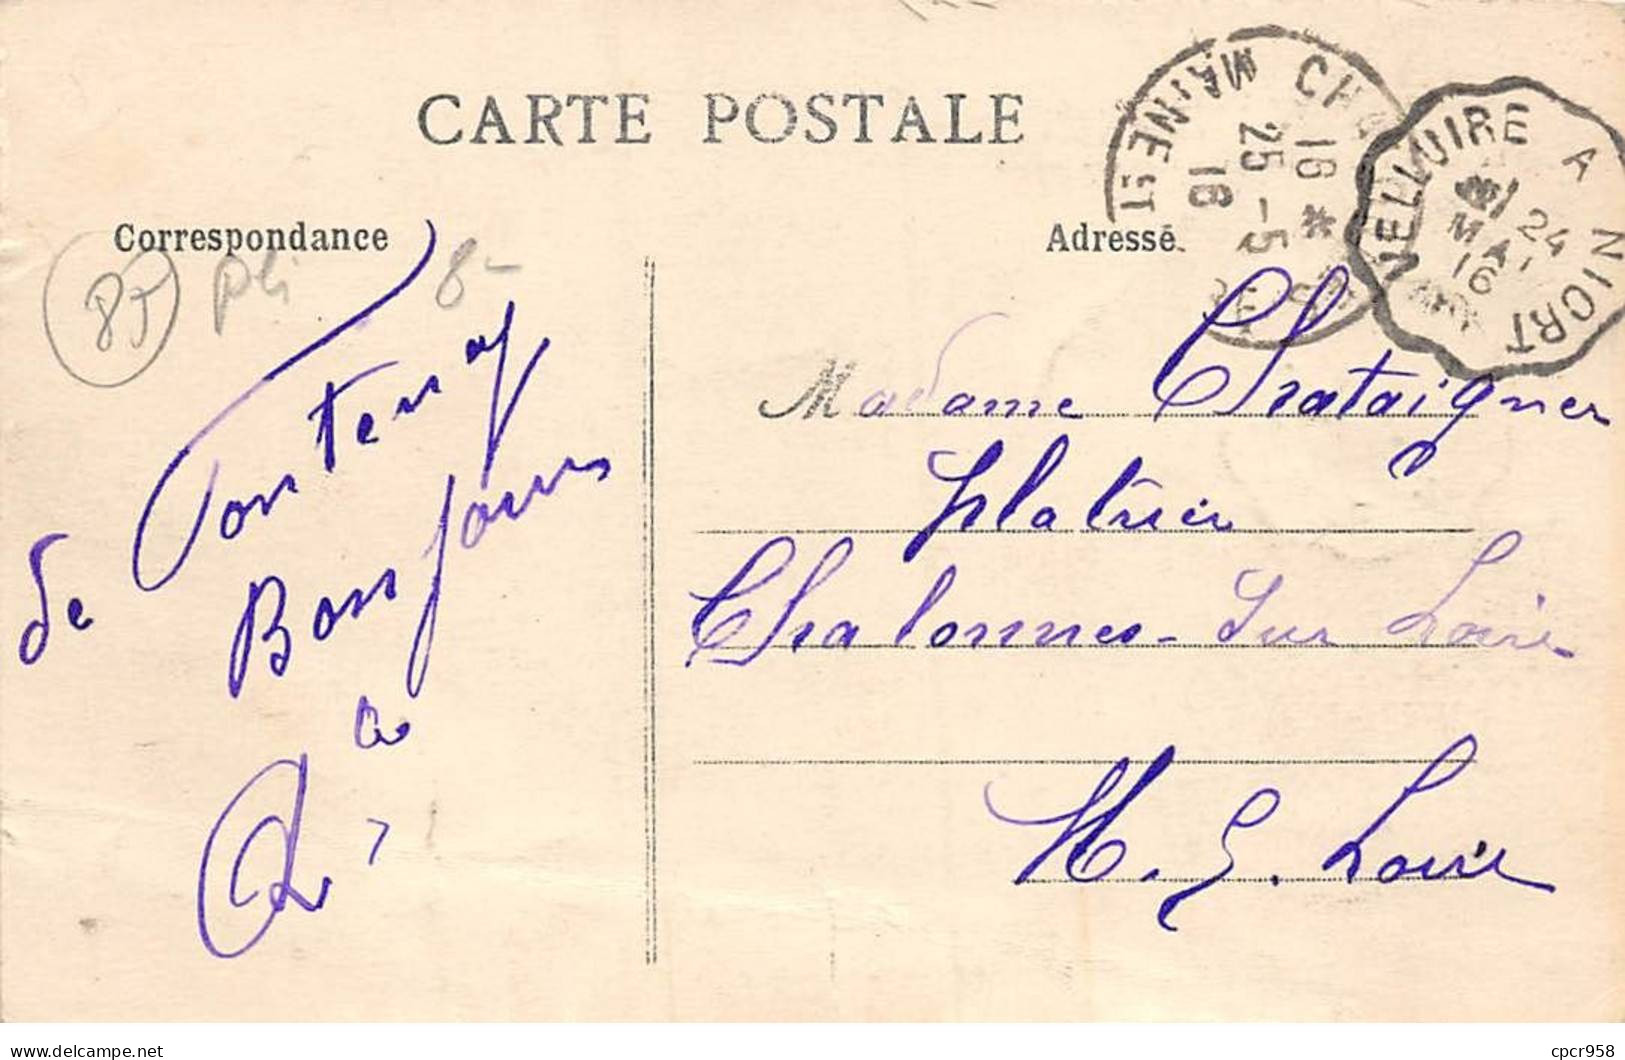 CARTE POSTALE
Correspondance
Adresse
85
pli
8-
de Fontenay
Bonjours
a
MAINE ET
16 *
25 - 5
16
VELLUIRE A NIORT
24
MAI
16
Madame Chataigner
plâtrier
Chalonnes-Sur Loire
M. E. Loire
www.delcampe.net
cpcr958